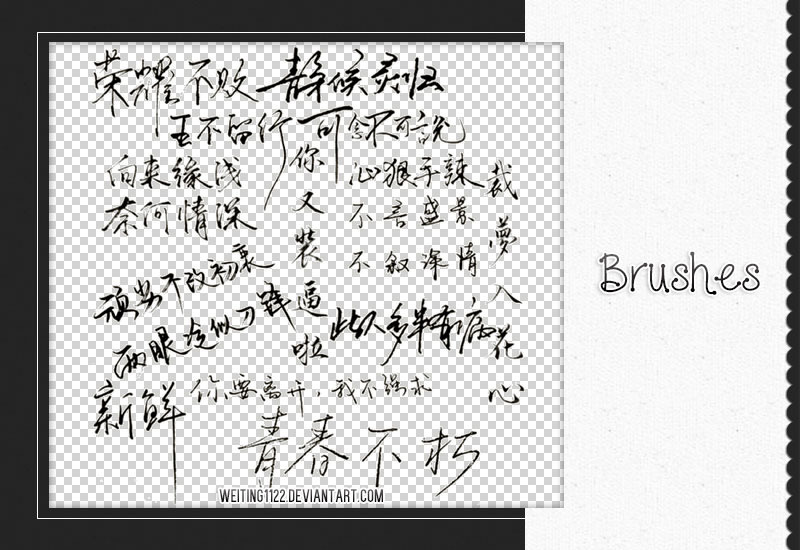 荣耀不败
静候灵归
王不留行
可念不可说
向来缘浅
奈何情深
你又装逼啦
心狠手辣
不言盛景
不叙深情
裁梦入花心
顽劣不改初衷
两眼冷似刀
此人多半有病
新鲜
你要离开，我不强求
青春不朽
WEITING1122.DEVIANTART.COM
Brushes